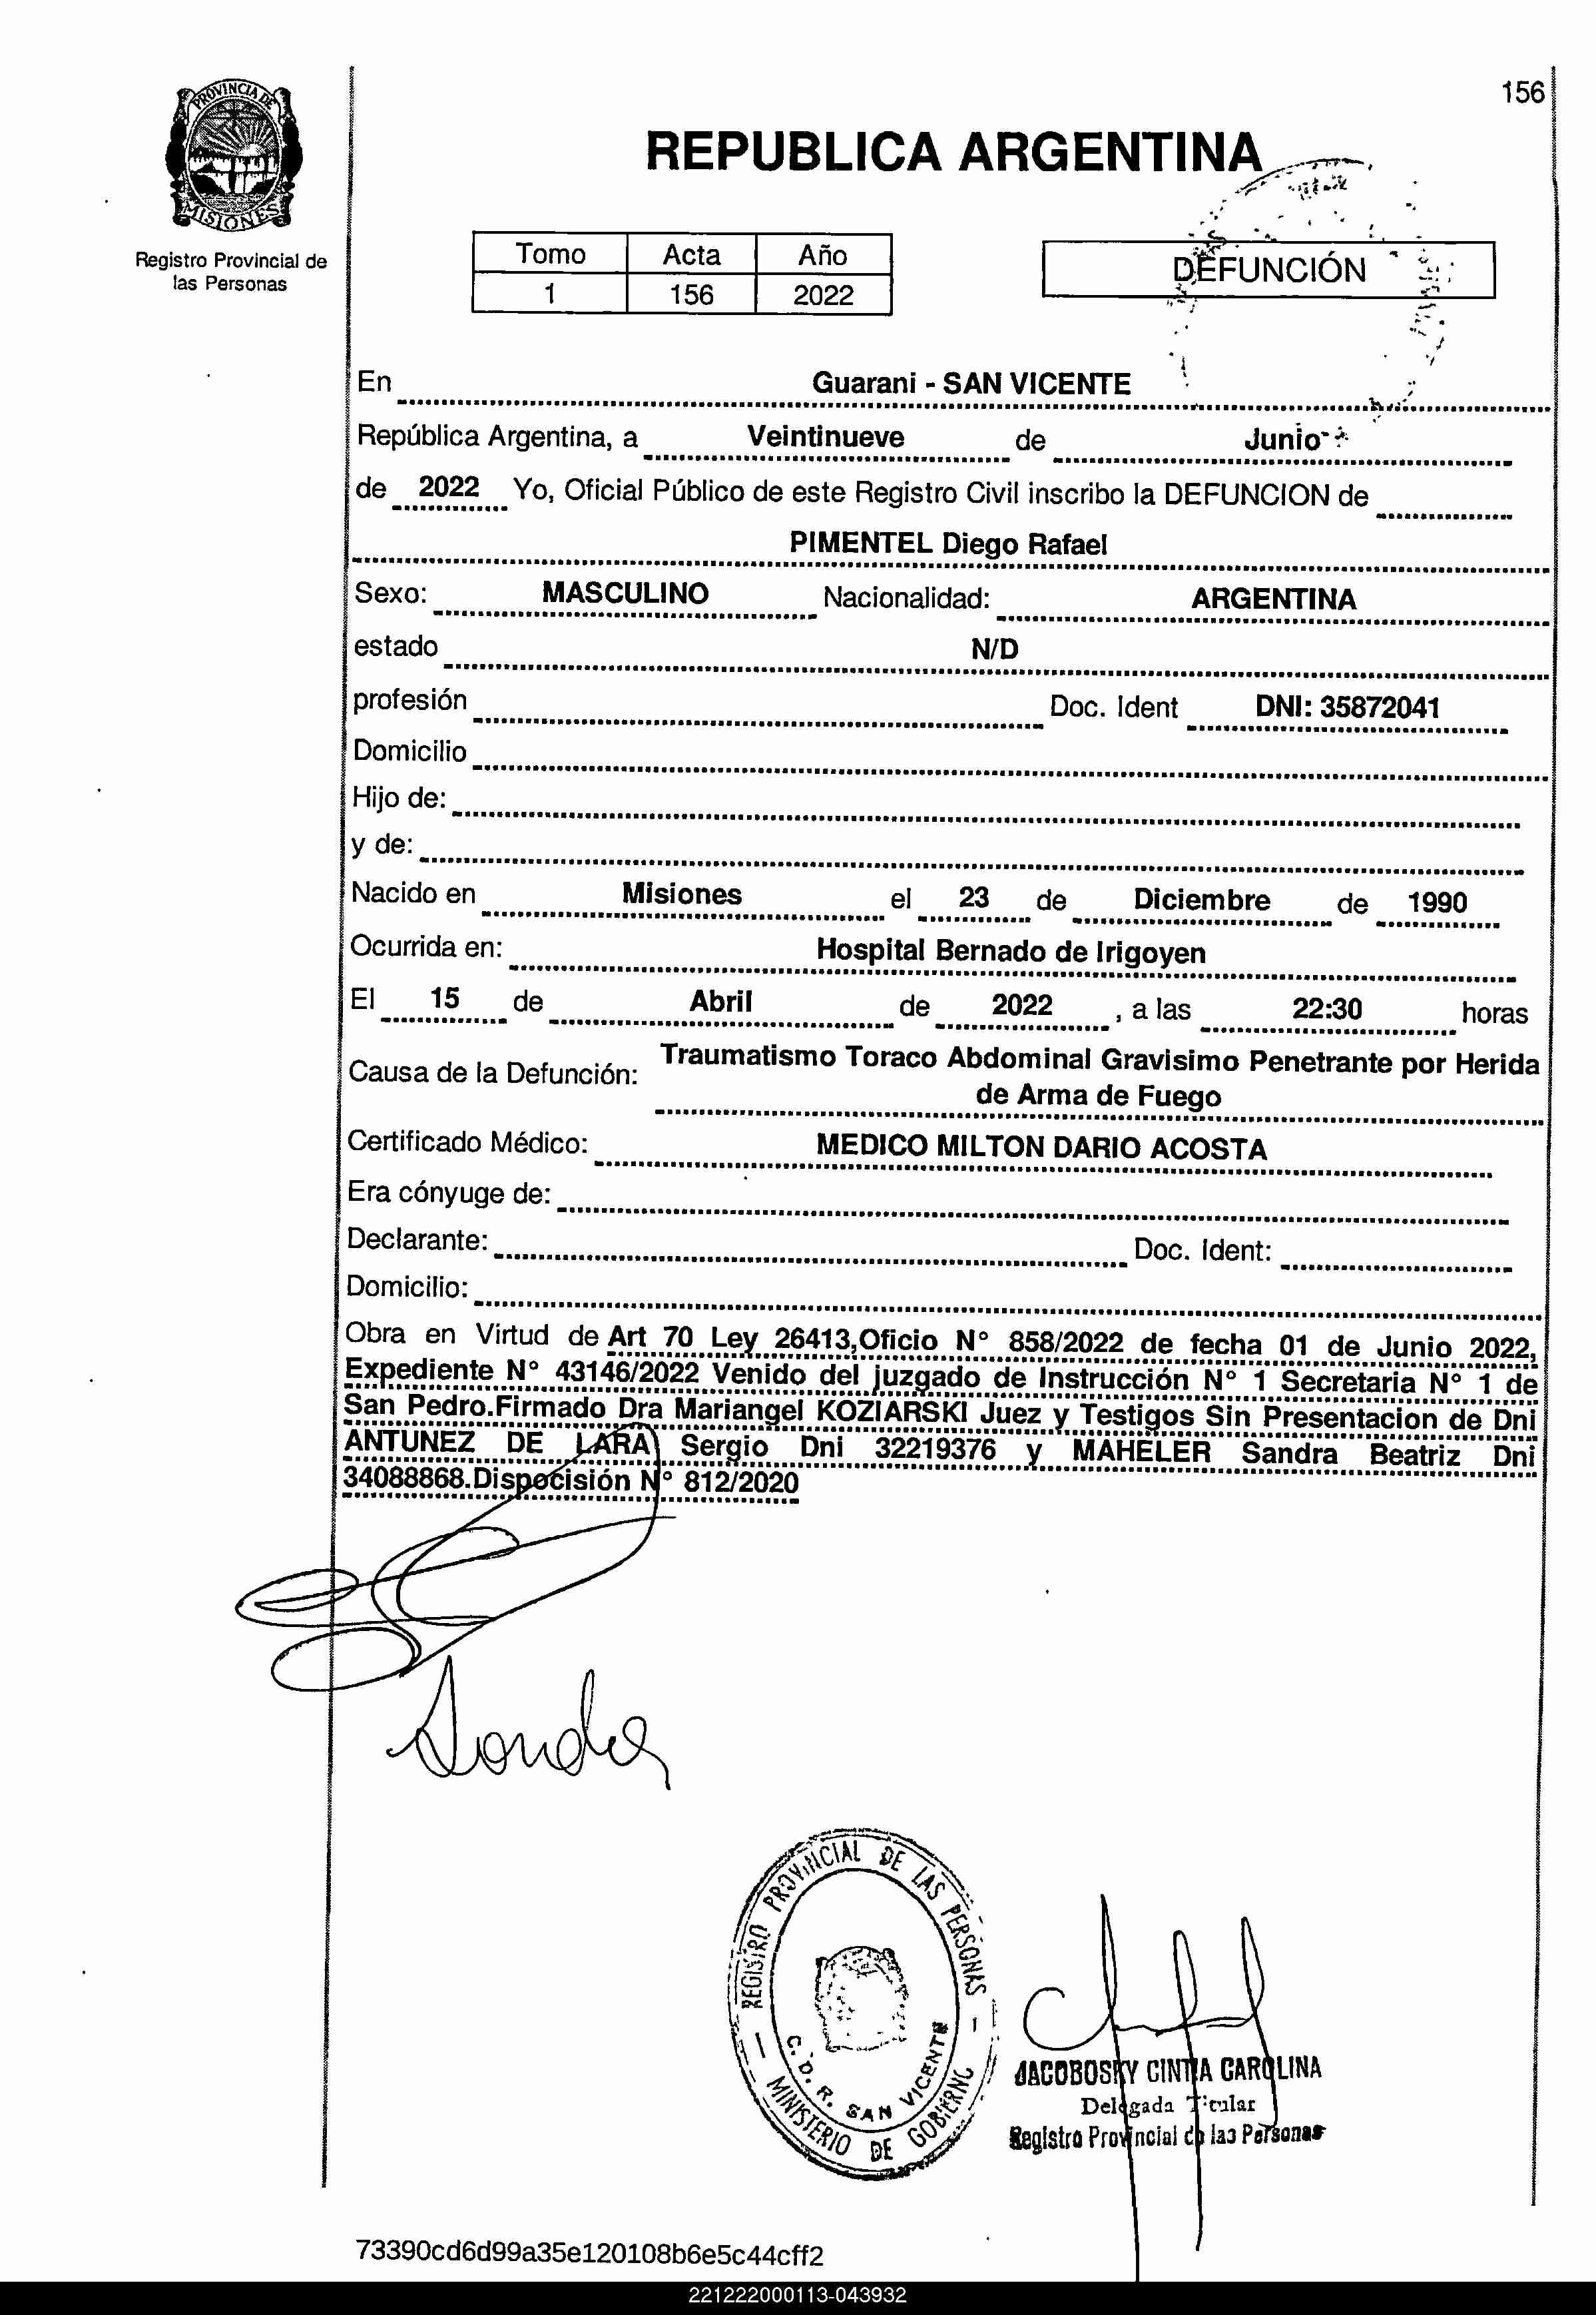 156
PROVINCIA DE
MISIONES
Registro Provincial de
las Personas
REPUBLICA ARGENTINA
Tomo Acta Año
1 156 2022
DEFUNCIÓN
En Guarani - SAN VICENTE
República Argentina, a Veintinueve de Junio
de 2022 Yo, Oficial Público de este Registro Civil inscribo la DEFUNCION de
PIMENTEL Diego Rafael
Sexo: MASCULINO Nacionalidad: ARGENTINA
estado N/D
profesión Doc. Ident DNI: 35872041
Domicilio
Hijo de:
y de:
Nacido en Misiones el 23 de Diciembre de 1990
Ocurrida en: Hospital Bernado de Irigoyen
El 15 de Abril de 2022 , a las 22:30 horas
Causa de la Defunción: Traumatismo Toraco Abdominal Gravisimo Penetrante por Herida
de Arma de Fuego
Certificado Médico: MEDICO MILTON DARIO ACOSTA
Era cónyuge de:
Declarante: Doc. Ident:
Domicilio:
Obra en Virtud de Art 70 Ley 26413,Oficio N° 858/2022 de fecha 01 de Junio 2022,
Expediente N° 43146/2022 Venido del juzgado de Instrucción N° 1 Secretaria N° 1 de
San Pedro.Firmado Dra Mariangel KOZIARSKI Juez y Testigos Sin Presentacion de Dni
ANTUNEZ DE LARA Sergio Dni 32219376 y MAHELER Sandra Beatriz Dni
34088868.Dispocisión N° 812/2020
Sandra
REGISTRO PROVINCIAL DE LAS PERSONAS
C. D. R. SAN VICENTE
MINISTERIO DE GOBIERNO
JACOBOSKY CINTIA CAROLINA
Delegada Titular
Registro Provincial de las Personas
73390cd6d99a35e120108b6e5c44cff2
221222000113-043932